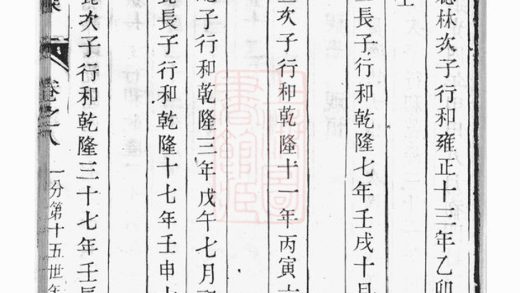 林次子行和雍正十三年乙卯
長子行和乾隆七年壬戌十月
次子行和乾隆十一年丙寅
子行和乾隆三年戊午七月
長子行和乾隆十七年壬申
次子行和乾隆三十七年壬辰
卷之八 一分第十五世